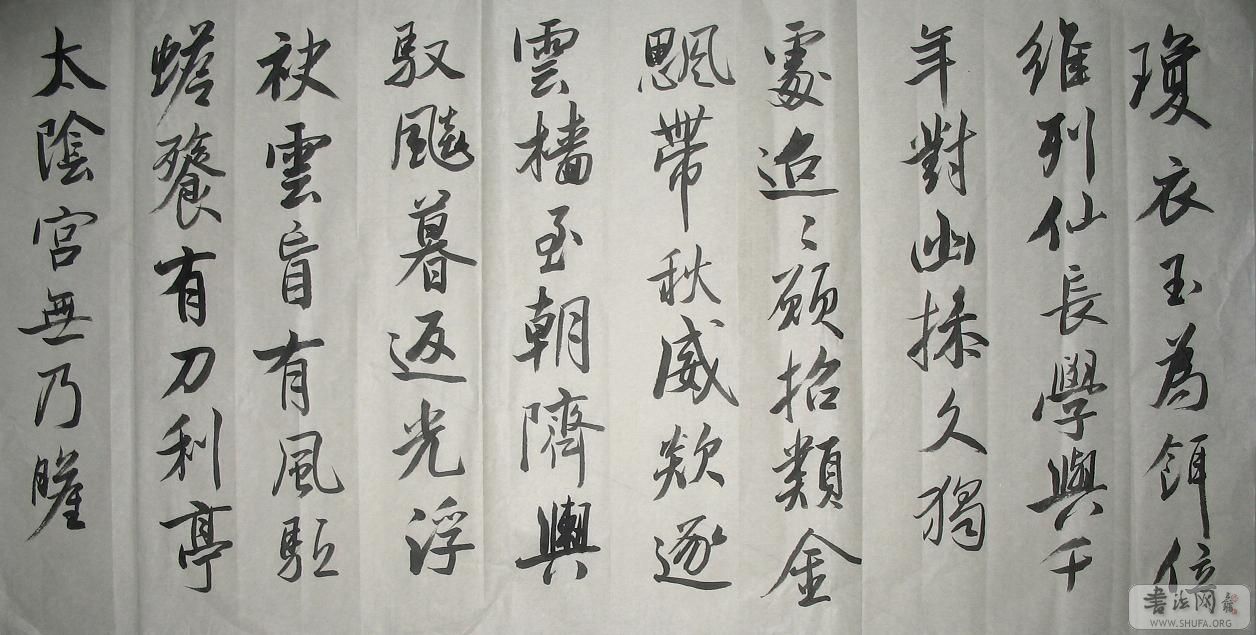 瓊衣玉為餌位
維列仙長學與千
年對幽操久獨
處迢〻願招類金
颸帶秋威欻逐
雲檣至朝隮輿
馭飈暮返光浮
袂雲肓有風駈
蟾餮有刀利亭
太陰宮無乃
书法网
WWW.SHUFA.ORG